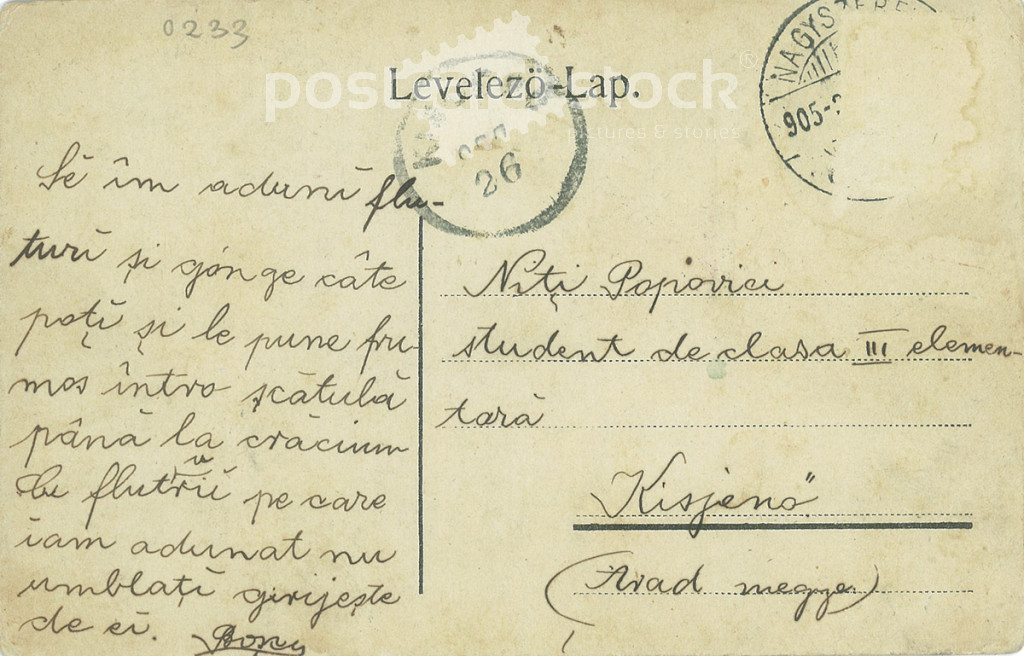 0233
postcard stock
pictures & stories
Levelezö-Lap.
NAGYSZEBE
905-
26
Sĕ îm aduni flu-
turi și gónge câte
poți și le pune fru-
mos întro șcătulă
până la crăciun
be fluturii pe care
iam adunat nu
umblați girijește
de ei.
Niți Popovici
student de clasa III elemen-
tară
"Kisjenö"
(Arad megye)